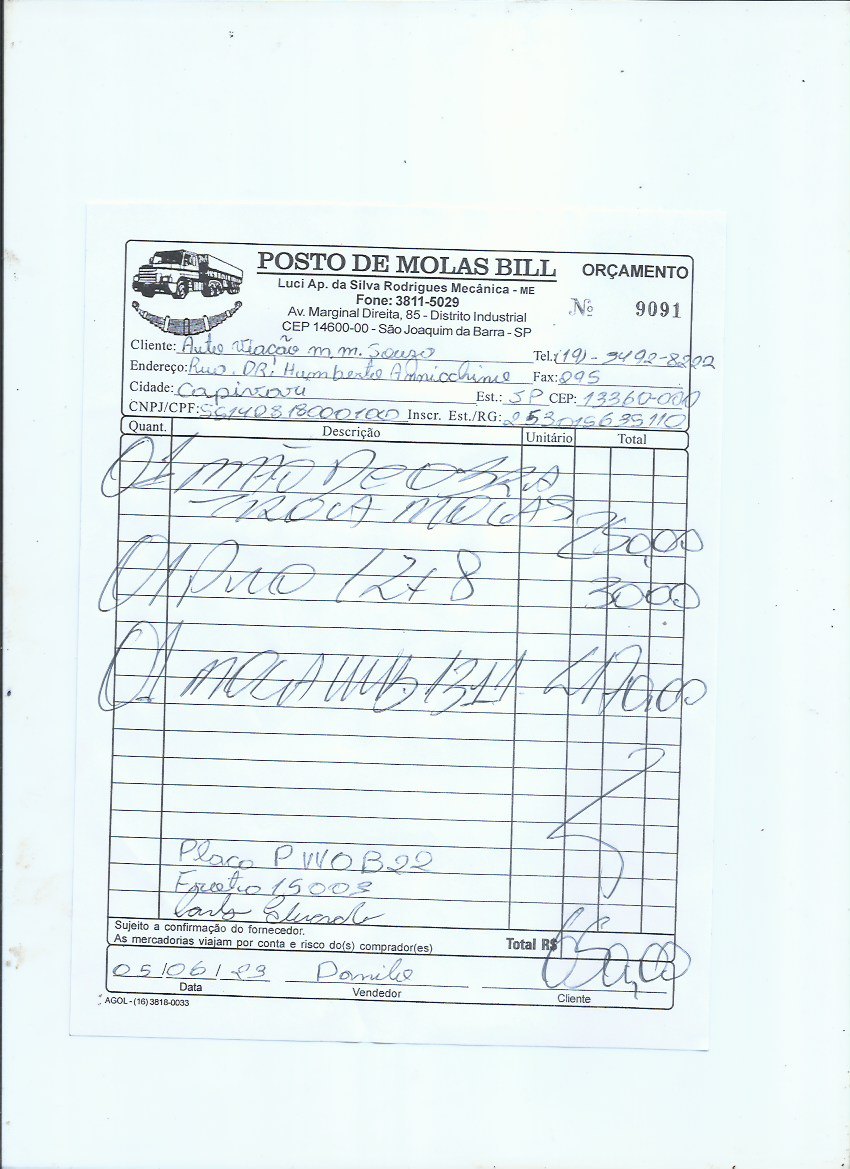 POSTO DE MOLAS BILL
ORÇAMENTO
Luci Ap. da Silva Rodrigues Mecânica - ME
Fone: 3811-5029
Nº 9091
Av. Marginal Direita, 85 - Distrito Industrial
CEP 14600-00 - São Joaquim da Barra - SP
Cliente: Auto Viação M.M. Souza Tel.: (19) - 9492-8222
Endereço: Rua. DR: Humberto Fax: 895
Cidade: Capivari Est.: SP CEP: 13360-000
CNPJ/CPF: Inscr. Est./RG:
Quant. Descrição Unitário Total
01 MÃO DE OBRA
TROCA MOLAS 250,00
01 Pino 12x8 30,00
01 MOLA 1311 470,00
Placa PWOB22
15003
Carlos Eduardo
Sujeito a confirmação do fornecedor.
As mercadorias viajam por conta e risco do(s) comprador(es)
Total R$
05/06/23 Danilo
Data Vendedor Cliente
AGOL - (16) 3818-0033